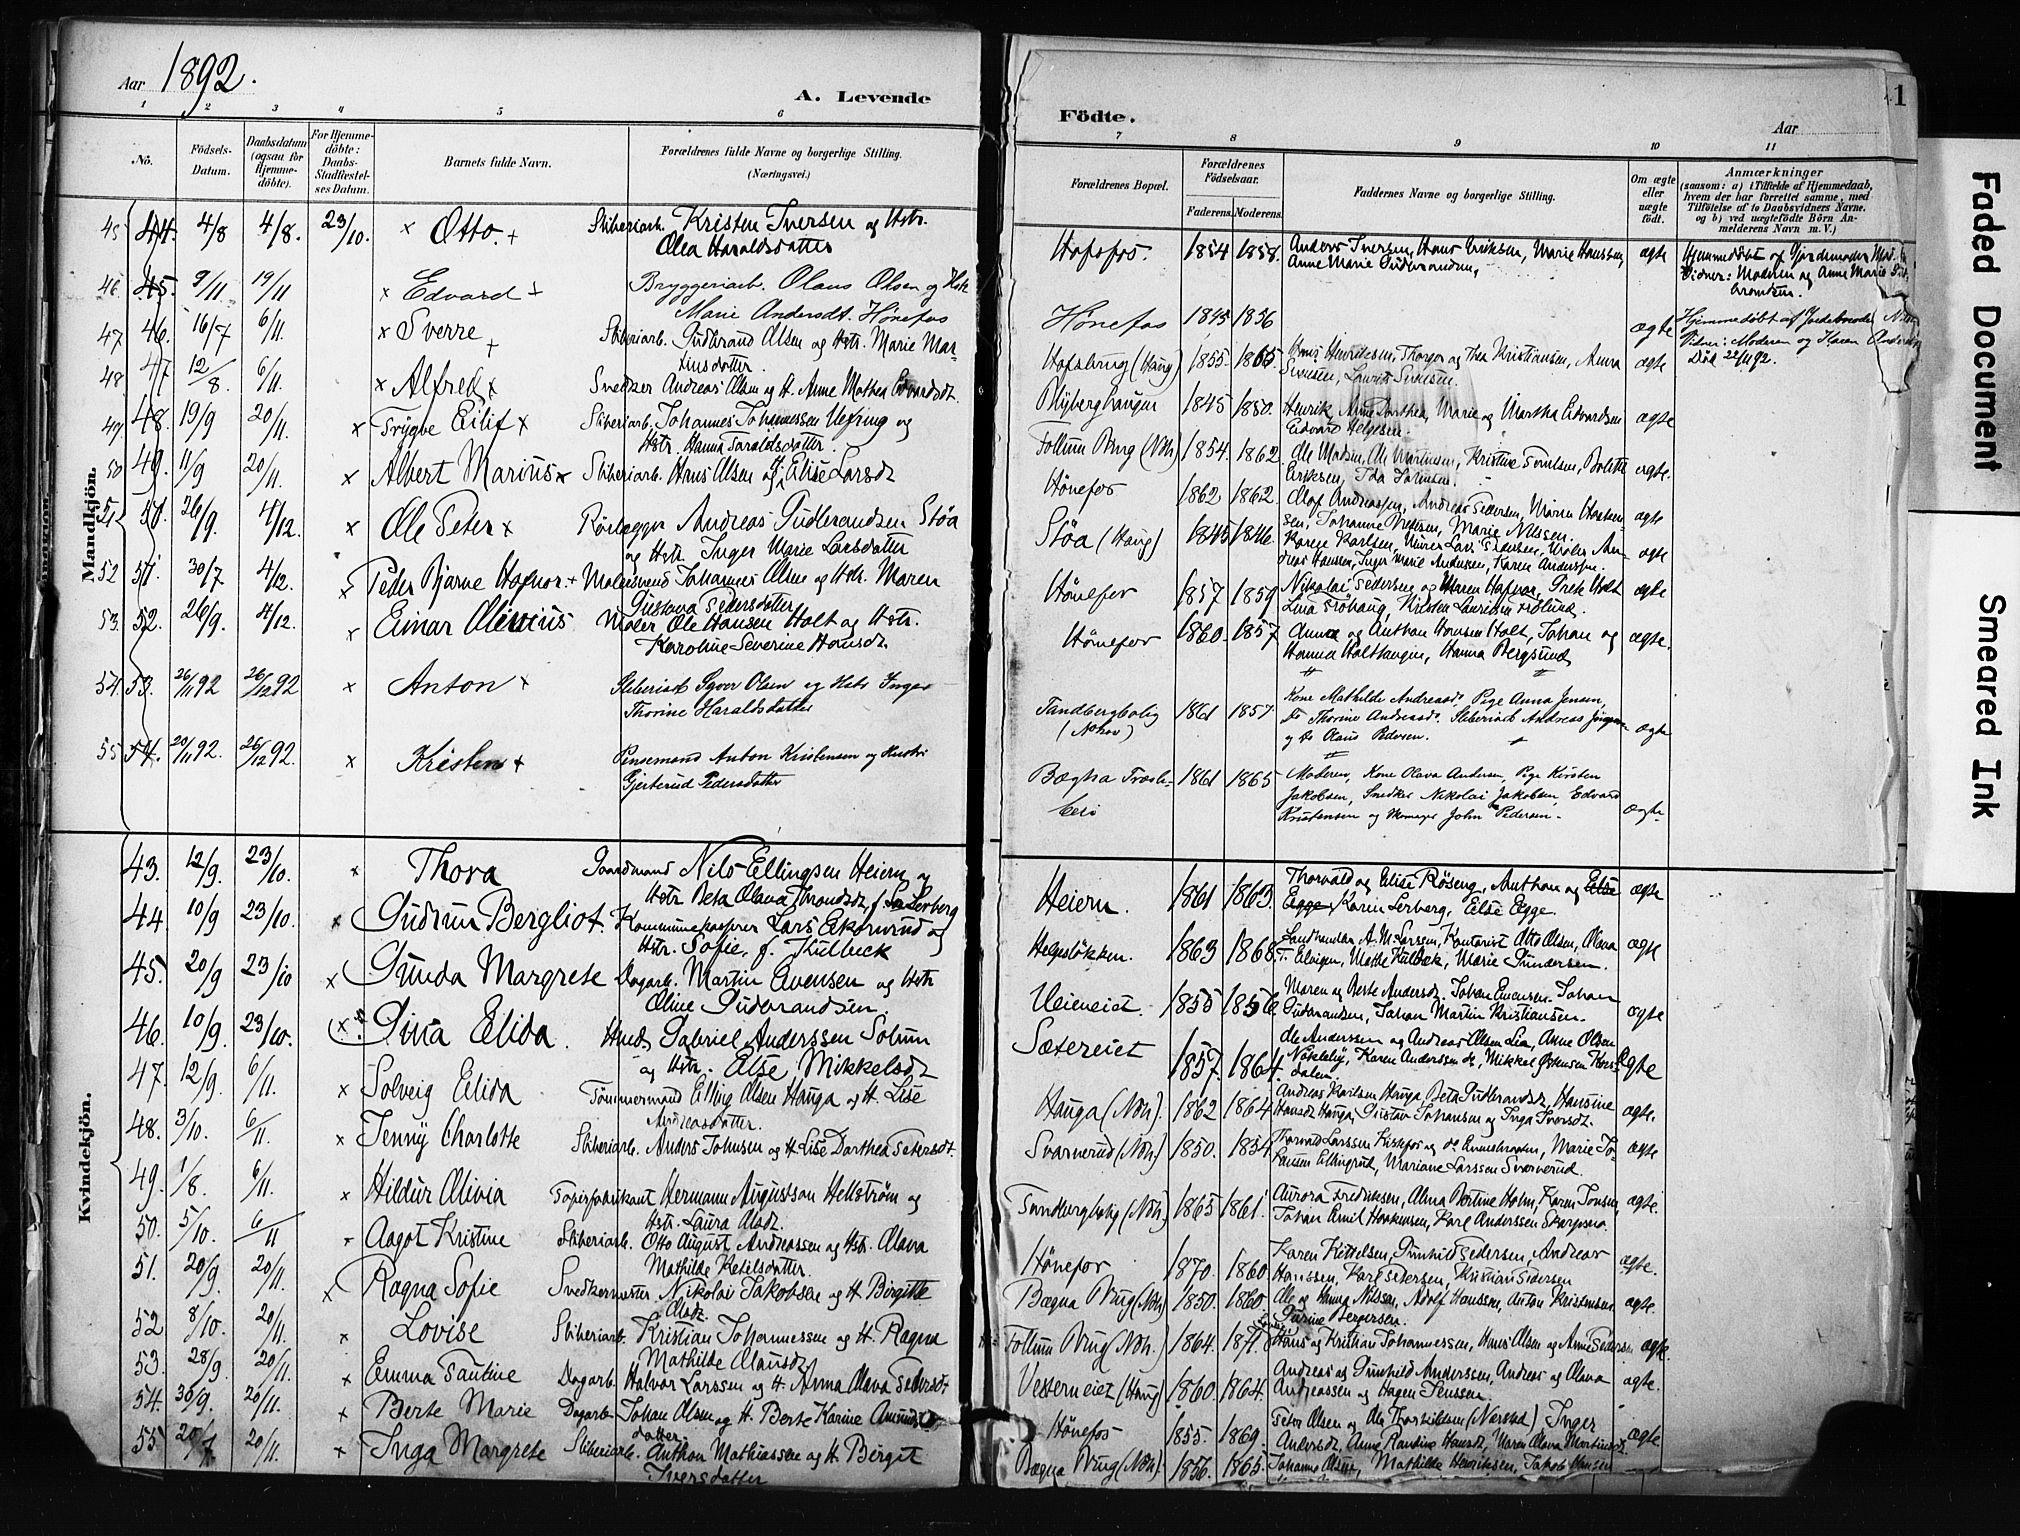 Aar 1892.
A. Levende
1 2 3 4 5 6
No. Födsels-Datum. Daabsdatum (ogsaa for Hjemme-döbte). For Hjemme-döbte: Daabs-Stadfæstel-ses Datum. Barnets fulde Navn. Forældrenes fulde Navne og borgerlige Stilling. (Næringsvei.)
Mandkjön.
45 44. 4/8 4/8. 23/10. × Otto. + Sliberiarb. Kristen Iversen og Hstr.
Olea Haraldsdatter
46 45. 9/11 19/11 × Edvard + Bryggeriarb. Olaus Olsen og Hstr
Marie Andersdt. Hönefos
47 46. 16/7 6/11. × Sverre + Sliberiarb. Gudbrand Olsen og Hstr. Marie Mar-
tinsdatter.
48 47 12/8. 6/11. × Alfred × Snedker Andreas Olsen og H. Anne Mathea Edvardsdt.
49 48. 19/9 20/11. × Trygve Eilif × Sliberiarb. Johannes Johannessen Vefring og
Hstr. Hanna Taraldsdatter.
50 49. 11/9 20/11. × Albert Marius × Sliberiarb. Hans Olsen og H. Elise Larsdt
51 50. 26/9. 4/12. × Ole Peter × Rörlægger Andreas Gudbrandsen Stöa
og Hstr. Inger Marie Larsdatter
52 51. 30/7 4/12. × Peder Bjarne Hafnor + Malersvend Johannes Olsen og Hstr. Maren
Gustava Pedersdatter
53. 52. 26/9. 4/12. × Einar Olenius Maler Ole Hansen Holt og Hstr.
Karoline Severine Hansdt.
54. 53. 26/11 92 26/12 92 × Anton × Sliberiarb Syver Olsen og Hstr Inger
Thorine Haraldsdatter
55 54. 20/11 92. 26/12 92. × Kristen + Pensemand Anton Kristensen og Hustr.
Gjertrud Pedersdatter
Kvindekjön.
43. 12/9. 23/10. × Thora Gaardmand Nils Ellingsen Heiern og
Hstr Beta Olava Throndsdt. f. Lerberg
44. 10/9 23/10. × Gudrun Bergliot. Kommunekasserer Lars Ekornrud og
Hstr. Sofie, f. Kulbeck
45. 20/9 23/10 × Gunda Margrete Dagarb. Martin Evensen og Hstr
Oline Gudbrandsen.
46. 10/9. 23/10. Dina Elida. Hmd. Gabriel Anderssen Solum
og Hstr. Else Mikkelsdt
47. 12/9. 6/11. × Solveig Elida Tömmermand Elling Olsen Hauga og H. Lise
Andreasdatter.
48. 3/10. 6/11. × Jenny Charlotte Sliberiarb. Anders Johnsen og H. Lise Dorthea Pedersdt.
49. 1/8. 6/11. × Hildur Olivia Papirfabrikant Hermann Augustson Hellström og
Hstr. Laura Olsdt.
50. 5/10. 6/11 Aagot Kristine Sliberiarb. Otto August Andreassen og Hstr. Olava
Mathilde Ketilsdatter.
51. 20/9. 20/11. × Ragna Sofie Snedkermester Nikolai Jakobsen og H. Birgitte
Olsdt.
52 8/10. 20/11. Lovise Sliberiarb. Kristian Johannessen og H. Ragna
Mathilde Olausdt.
53. 28/9. 20/11. × Emma Pauline Dagarb. Halvor Larssen og H. Anna Olava Pedersdt.
54. 30/9. 20/11. × Berte Marie Dagarb. Johan Olsen og H. Berte Karine Amunds-
datter.
55 20/11. × Inga Margrete Sliberiarb. Anthon Mathiassen og H. Birgit
Iversdatter
Födte.
Aar
7 8 9 10 11
Forældrenes Bopæl. Forældrenes Födselsaar. Faderens. Moderens. Faddernes Navne og borgerlige Stilling. Om ægte eller uægte födt. Anmærkninger (saasom: a) i Tilfælde af Hjemmedaab, hvem der har forrettet samme, med Tilföielse af to Daabsvidners Navne. og b) ved uægtefödte Börn An-melderens Navn m. V.)
Hofsfos. 1854 1858. Anders Iversen, Hans Eriksen, Marie Hanssen, ægte Hjemmedöbt af Gjordemoder
Anne Marie Gudbrandsen, Vidner: Moderen og Anne Marie Gud-
brandsen.
Hönefos 1845 1856 ægte Hjemmedöbt af Jordemoder
Vidner: Moderen og Karen
Död 22/11 92.
Hofsbrug (Haug) 1855. 1865 Henriksen, Thea Kristiansen, Anna ægte
Blyberghaugen 1845 1850. Henrik, Anne Dorthea, Marie og Martha Edvardsen ægte
Edvard Helgesen.
Follum Brug (Noh) 1854. 1862. Ole Madsen, Ole Martinsen, Kristine Tomlesen, Bolette ægte.
Eriksen,
Hönefos 1862 1862. Olaf Andreassen, Andreas Pedersen, Maren Haaken- ægte
sen, Johanne Pedersen, Marie Nilssen.
Stöa (Haug) 1845 1846. Karen Karlsen, Lars Pedersen, Maler An- ægte
dreas Hansen, Inger Marie Andersen, Karen Anderssen.
Hönefos 1857 1859 Nikolai Pedersen og Maren Hafnor, Grete Holt ægte
Lina Fröhaug, Kristen Lauritsen
Hönefos 1860. 1857 Anna og Anthon Hansen Holt, Johan og ægte.
Hanna Holthaugen, Hanna Bergsund
Tandbergbolig (Nohov) 1861 1857 Kone Mathilde Andreasd. Pige Anna Jensen, ægte
Do Thorine Andreasd. Sliberiarb Andreas
og Do Olaus Pedersen.
Bægna Træsli-beri 1861 1865 Moderen, Kone Olava Andersen, Pige Kirsten
Jakobsen, Snedker Nikolai Jakobsen, Edvard
Kristensen og John Pedersen. ægte.
Heiern. 1861 1863. Thorvald og Elise Röseng, Anthon og Else ægte
Egge, Karin Lerberg, Else Egge.
Helgesløkken. 1863 1868. Landhandler A. M. Larssen, Kontorist Otto Olsen, Olava ægte
T. Elvigen, Mathe Kulbeck, Marie Gundersen.
Veieneiet. 1855 1856. Maren og Berte Andersdt. Johan Evensen. Johan
Gudbrandsen, Johan Martin Kristiansen. ægte
Sætereiet 1857. 1864. Ole Anderssen og Andreas Olsen Lia, Anne Olsen
Nökleby, Karen Anderssen, Mikkel Östensen ægte
Hauga (Noh). 1862 1864 Andreas Karlsen Hauga, Beta Gudbrandsdt, Hansine
Hansdt Hauga, Gustav Johansen og Inga Iversdt. ægte.
Svarverud (Noh) 1850. 1854. Thorvald Larssen og Marie Jo- ægte
hansen Ellingrud, Mariane Larssen Svarverud.
Tandbergbolig (Noh) 1865 1861. Aurora Fredriksen, Alma Bertine Holm, Karen Jonsen, ægte.
Johan Emil Haakensen, Karl Anderssen
Hönefos 1870. 1860. Karen Kittelsen, Gunhild Pedersen, Andreas ægte.
Hanssen, Karl Petersen, Kristian Pedersen
Bægna Brug (Noh) 1850. 1860. Ole og Hanna Nilssen, Adolf Hanssen, Anton Kristensen ægte.
Follum Brug (Noh.) 1864. 1871. Hans og Kristian Johannessen, Hans Olsen og Anne Pedersen ægte.
Vesterneiet (Haug) 1860. 1864. Andreas og Gunhild Anderssen, Andreas og Olava ægte.
Andreassen og Hagen Jenssen.
Hönefos 1855. 1869. Peter Olsen og Ole Thorkildsen (Nærstad) Inger ægte.
Andersdt, Anne Randine Hansdt, Maren Olava Martinsdt.
Bægna Brug (Noh). 1856. 1865. Johanne Olsen, Mathilde Henriksen, Jakob Hansen
Faded Document
Smeared Ink